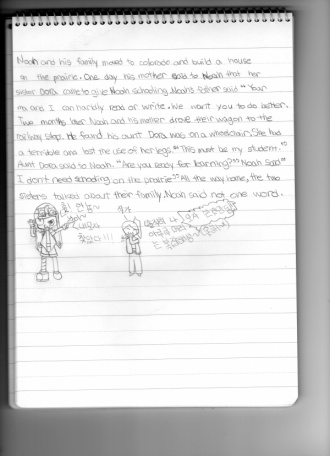 Noah and his family moved to colorado and build a house
on the prairie. One day his mother said to Noah that her
sister Dora come to give Noah schooling. Noah's father said "Your
ma and I can harkly read or write. We want you to do better.
Two months later Noah and his mother drove their wagon to the
railway stop. He found his aunt Dora was on a wheelchair. She had
a terrible and lost the use of her legs. "This must be my student."
Aunt Dora said to Noah. "Are you ready for learning?" Noah said"
I don't need schooling on the prairie." All the way home, the two
sisters talked about their family. Noah said not one word.